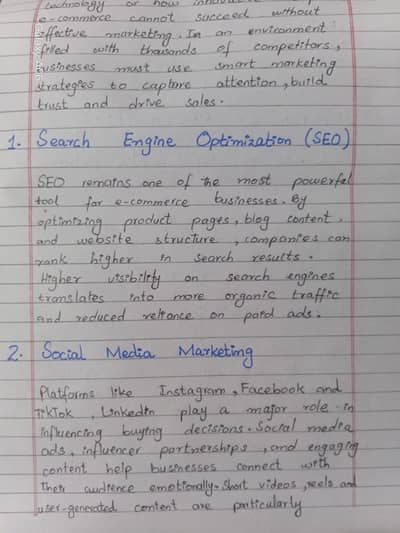 technology or how innovative
e-commerce cannot succeed without
effective marketing. In an environment
filled with thousands of competitors,
businesses must use smart marketing
strategies to capture attention, build
trust and drive sales.
1. Search Engine Optimization (SEO)
SEO remains one of the most powerful
tool for e-commerce businesses. By
optimizing product pages, blog content,
and website structure, companies can
rank higher in search results.
Higher visibility on search engines
translates into more organic traffic
and reduced reliance on paid ads.
2. Social Media Marketing
Platforms like Instagram, Facebook and
TikTok, Linkedin play a major role in
influencing buying decisions. Social media
ads, influencer partnerships, and engaging
content help businesses connect with
Their audience emotionally. Short videos, reels and
user-generated content are particularly